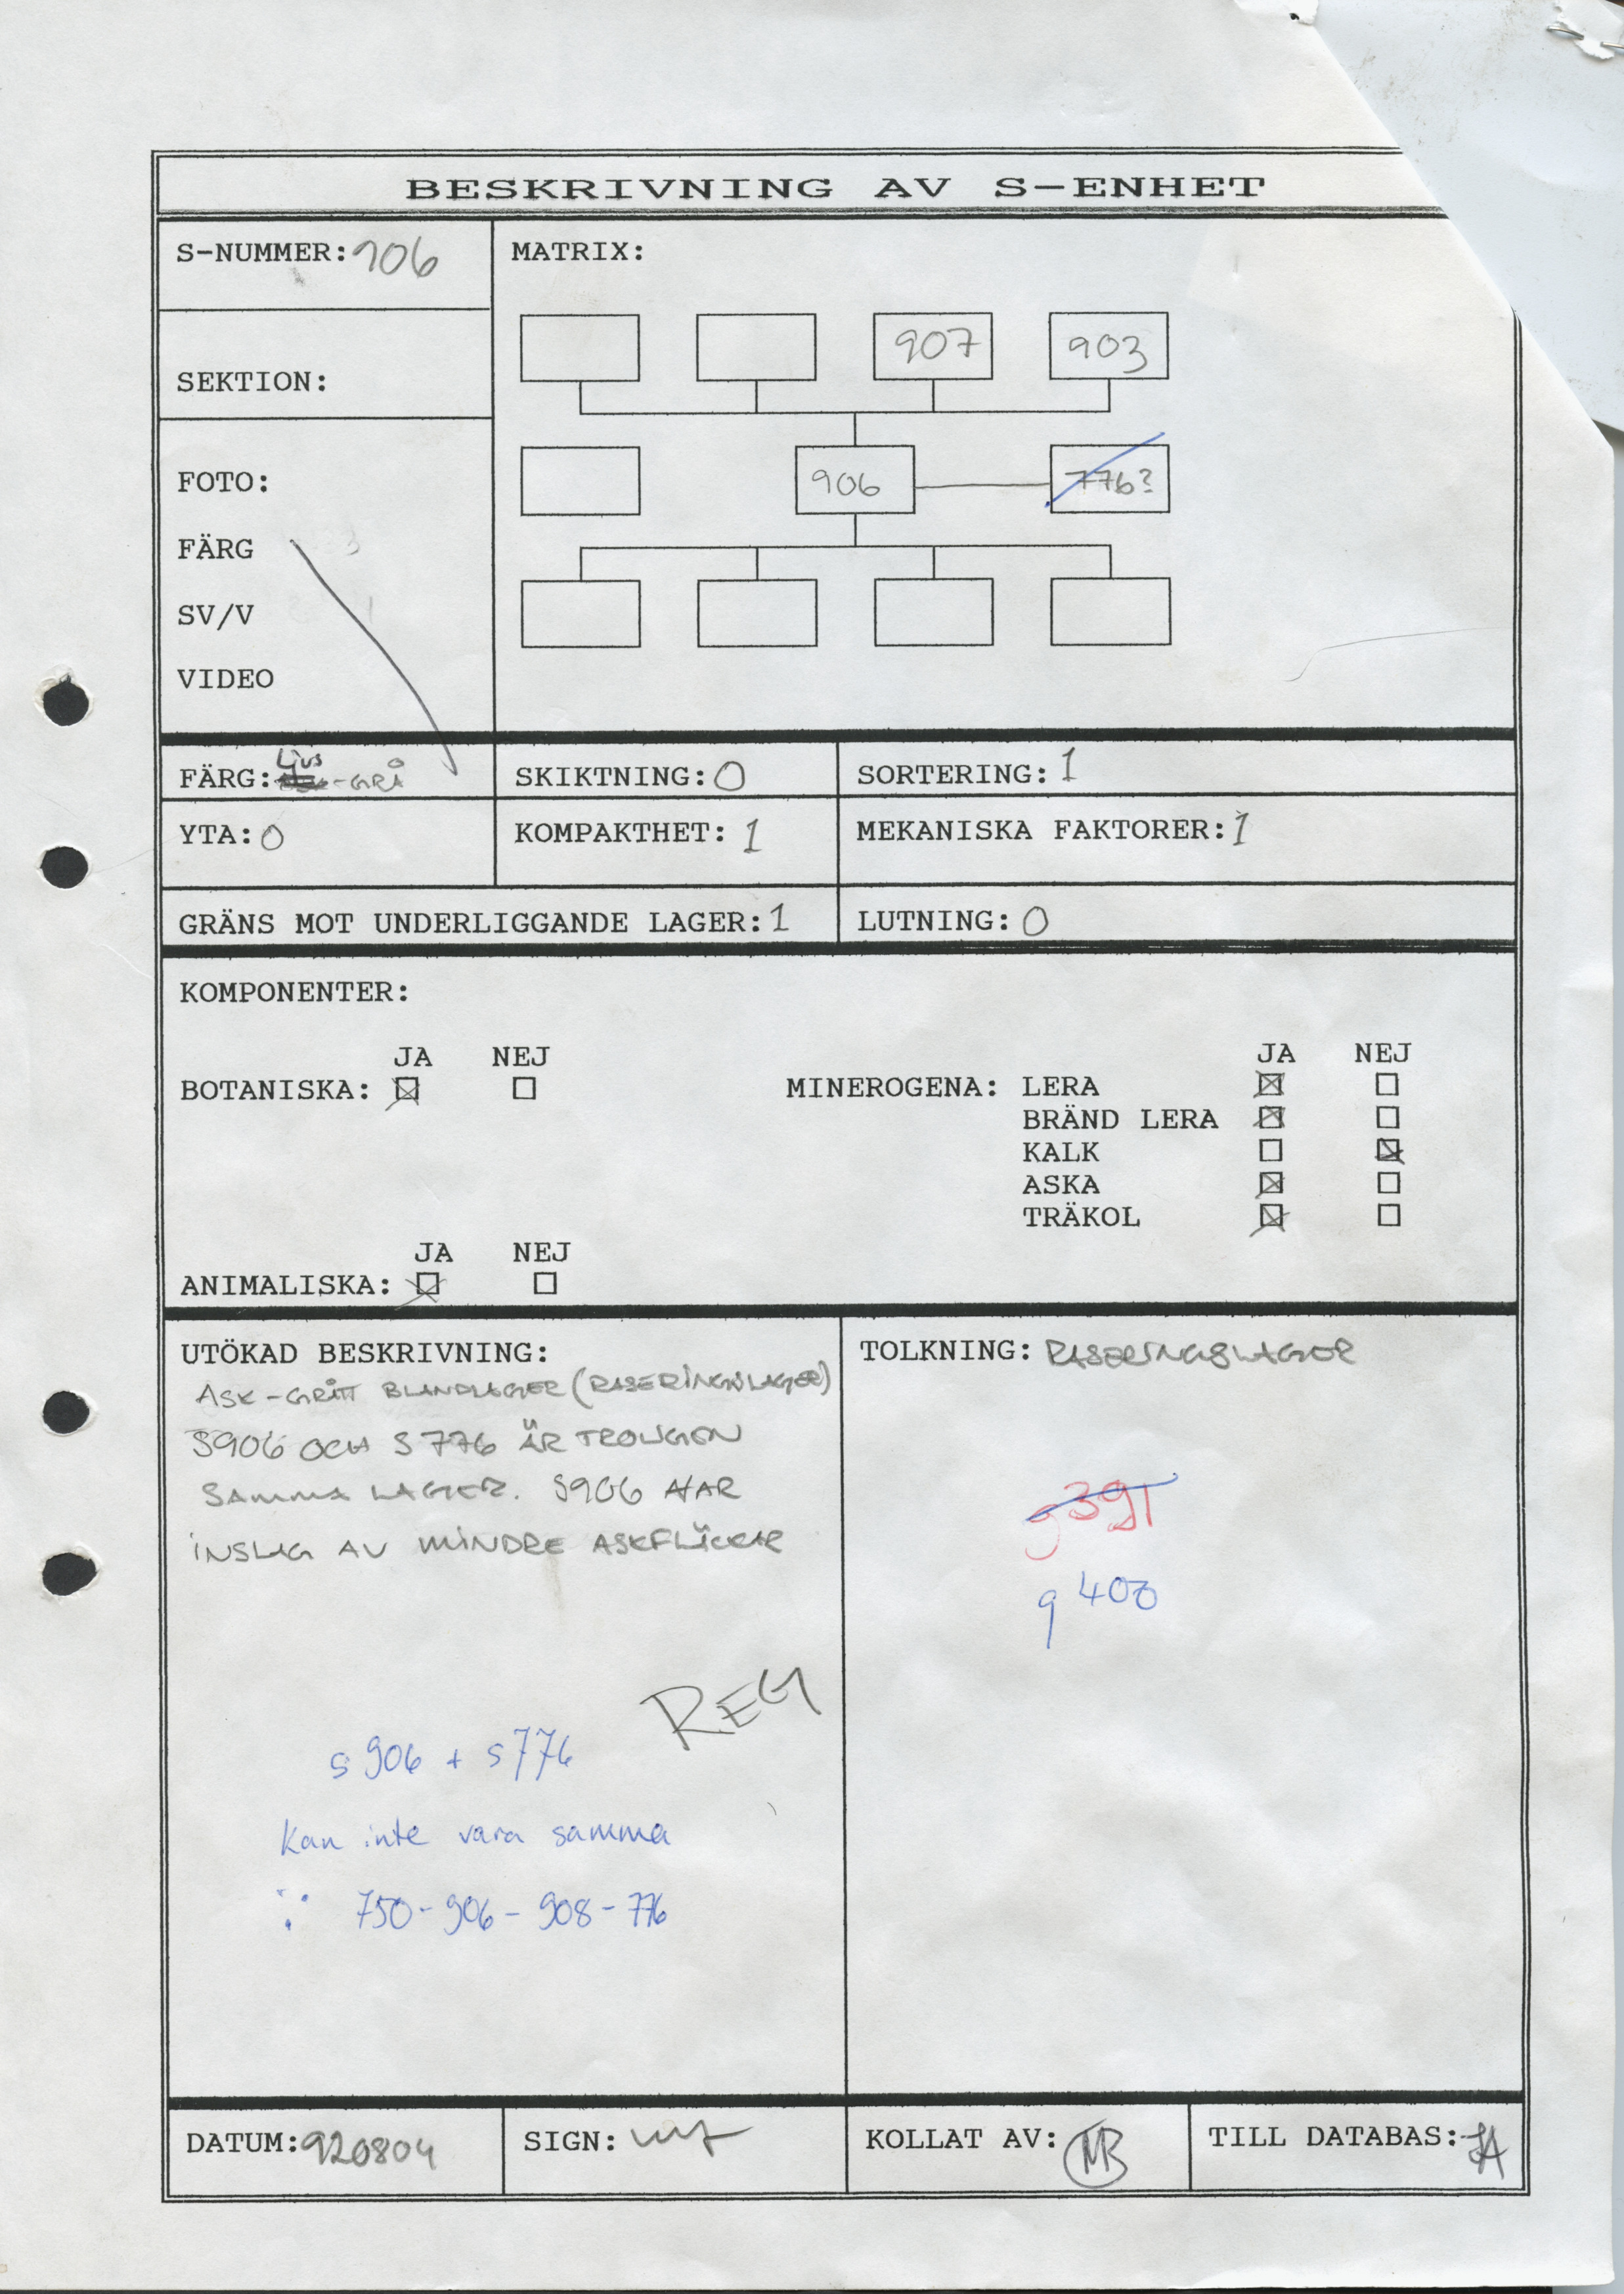 BESKRIVNING AV S-ENHET
S-NUMMER: 906
MATRIX:
907 903
SEKTION:
906 776?
FOTO:
FÄRG
SV/V
VIDEO
FÄRG: Ljus -GRÅ
SKIKTNING: 0
SORTERING: 1
YTA: 0
KOMPAKTHET: 1
MEKANISKA FAKTORER: 1
GRÄNS MOT UNDERLIGGANDE LAGER: 1
LUTNING: 0
KOMPONENTER:
JA NEJ
BOTANISKA:
JA NEJ
MINEROGENA: LERA
BRÄND LERA
KALK
ASKA
TRÄKOL
JA NEJ
ANIMALISKA:
UTÖKAD BESKRIVNING:
ASK-GRÅTT BLANDLAGER (RASERINGSLAGER)
S906 OCH S776 ÄR TROLIGEN
SAMMA LAGER. S906 HAR
INSLAG AV MINDRE ASKFLÄCKAR
REG
s906 + s776
Kan inte vara samma
∵ 750-906-908-776
TOLKNING: RASERINGSLAGER
g391
g400
DATUM: 920804
SIGN:
KOLLAT AV: MB
TILL DATABAS: JA